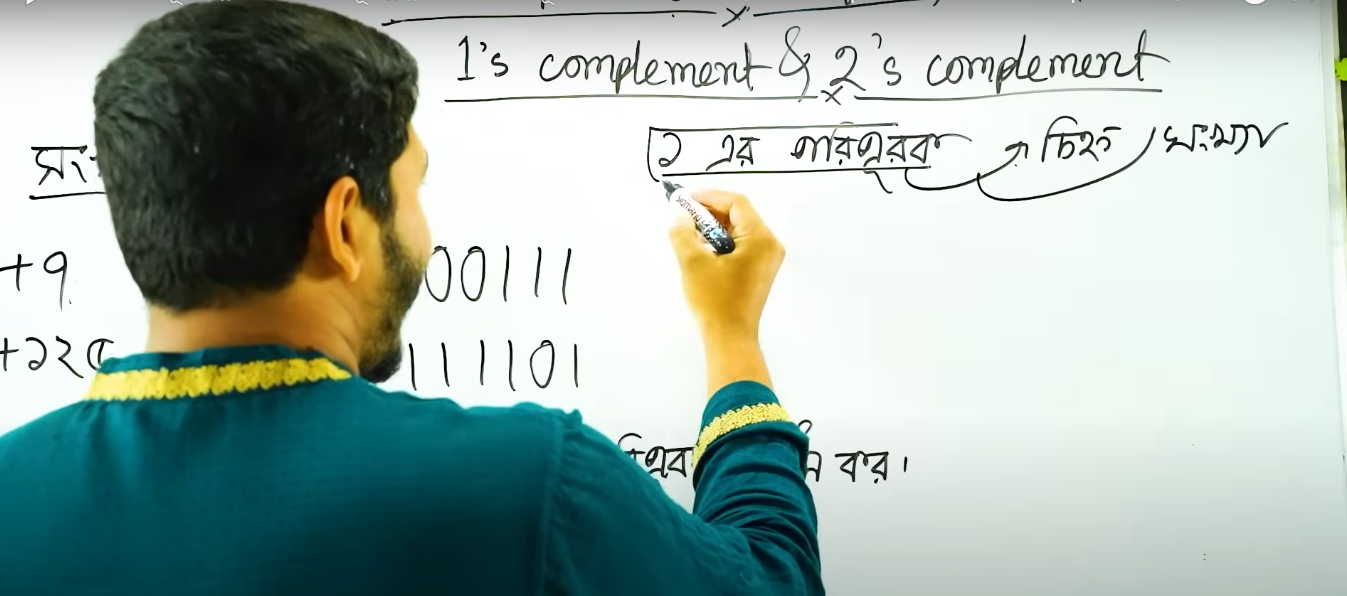 1's complement & 2's complement
১ এর পরিপূরক চিহ্ন / সংখ্যা
+৭ 00111
+১২৫ 111101
কর।